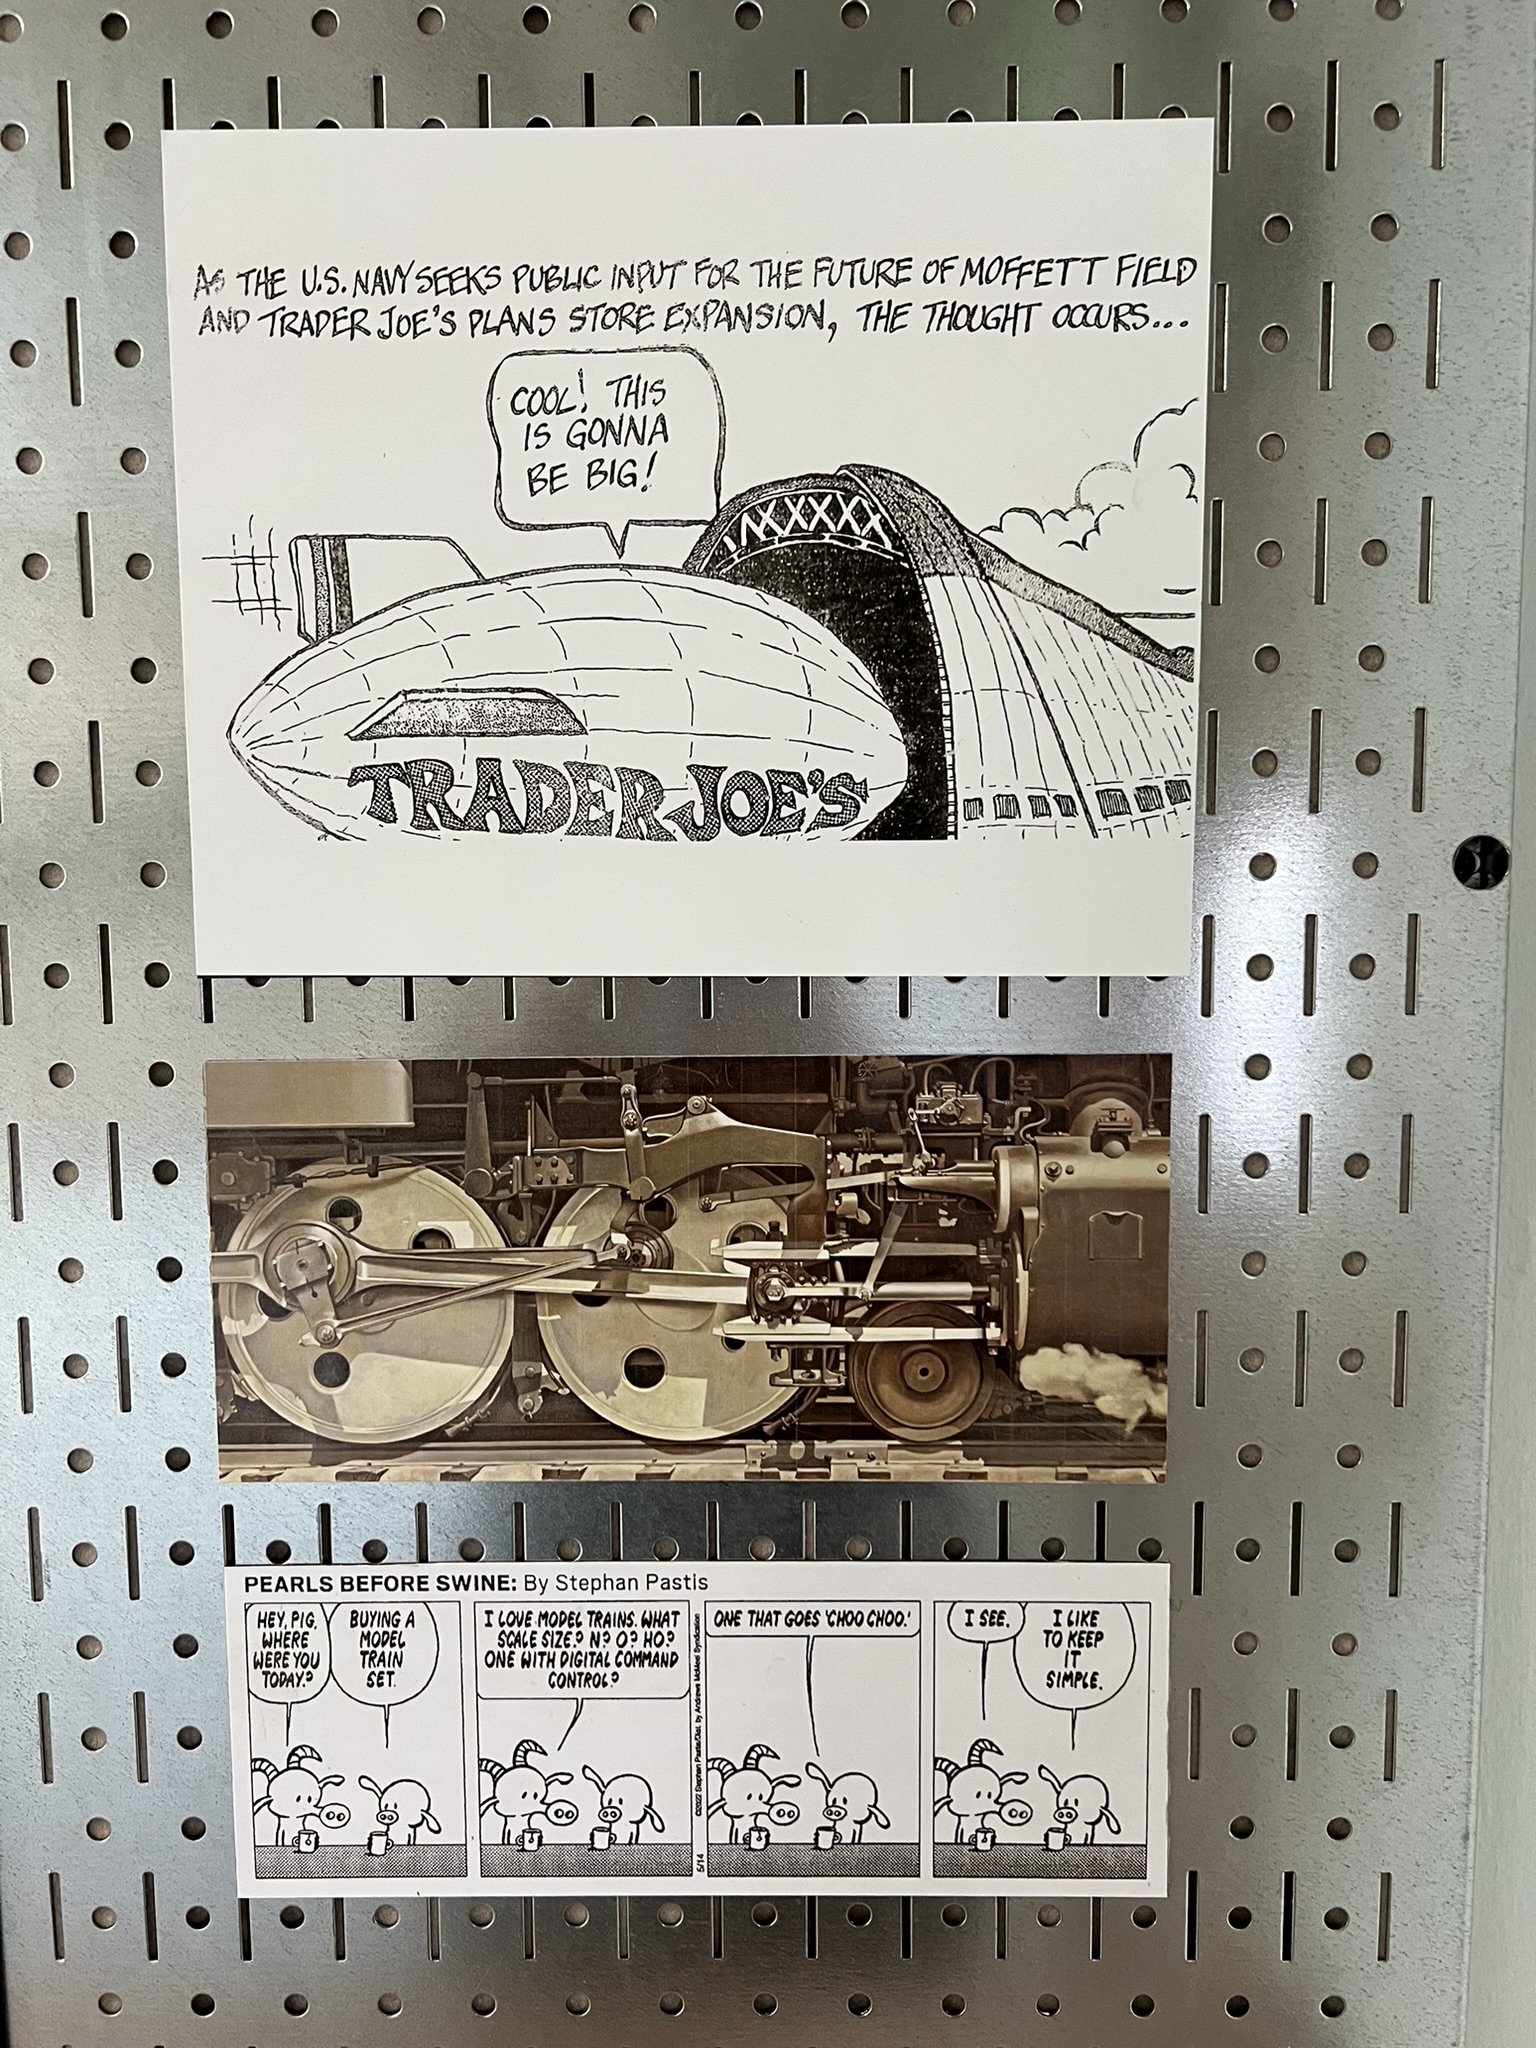 AS THE U.S. NAVY SEEKS PUBLIC INPUT FOR THE FUTURE OF MOFFETT FIELD
AND TRADER JOE'S PLANS STORE EXPANSION, THE THOUGHT OCCURS...
COOL! THIS
IS GONNA
BE BIG!
TRADER JOE'S
PEARLS BEFORE SWINE: By Stephan Pastis
HEY, PIG,
WHERE
WERE YOU
TODAY?
BUYING A
MODEL
TRAIN
SET.
I LOVE MODEL TRAINS. WHAT
SCALE SIZE? N? O? HO?
ONE WITH DIGITAL COMMAND
CONTROL?
©2022 Stephan Pastis/Dist. by Andrews McMeel Syndication
5/14
ONE THAT GOES 'CHOO CHOO.'
I SEE.
I LIKE
TO KEEP
IT
SIMPLE.